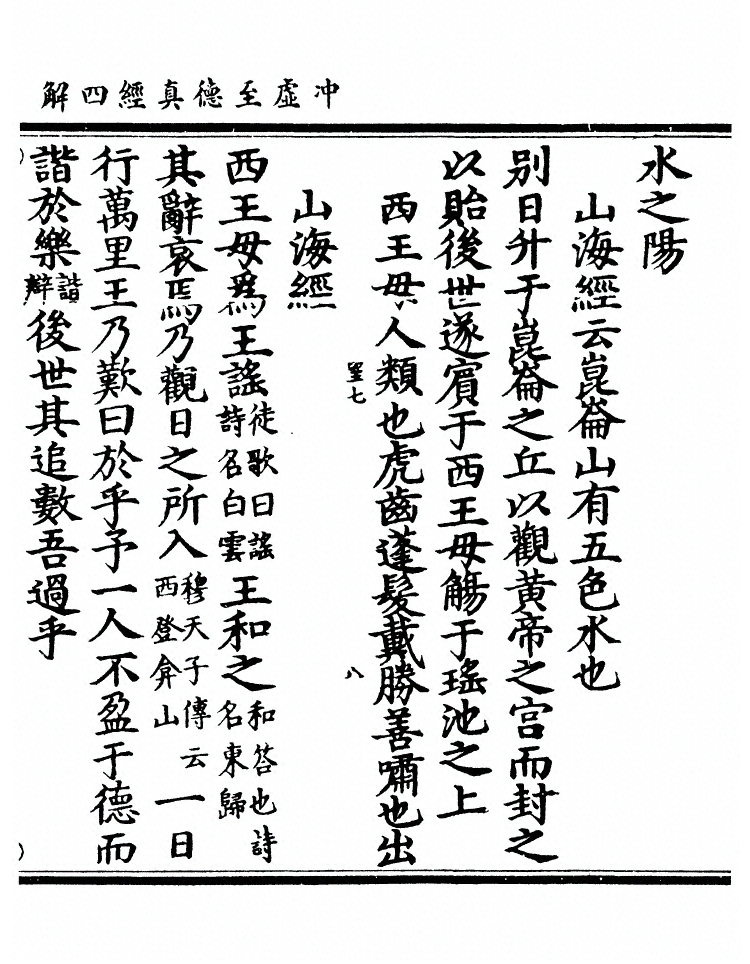 冲虛至德真經四解
水之陽
山海經云崑崙山有五色水也
别日升于崑崙之丘以觀黄帝之宮而封之
以貽後世遂賓于西王母觴于瑤池之上
西王母人類也虎齒蓬髮戴勝善嘯也出
墨七
八
山海經
西王母爲王謠徒歌曰謠詩名白雲王和之和答也詩名東歸
其辭哀焉乃觀日之所入穆天子傳云西登弇山一日
行萬里王乃歎曰於乎予一人不盈于德而
諧於樂諧辯後世其追數吾過乎